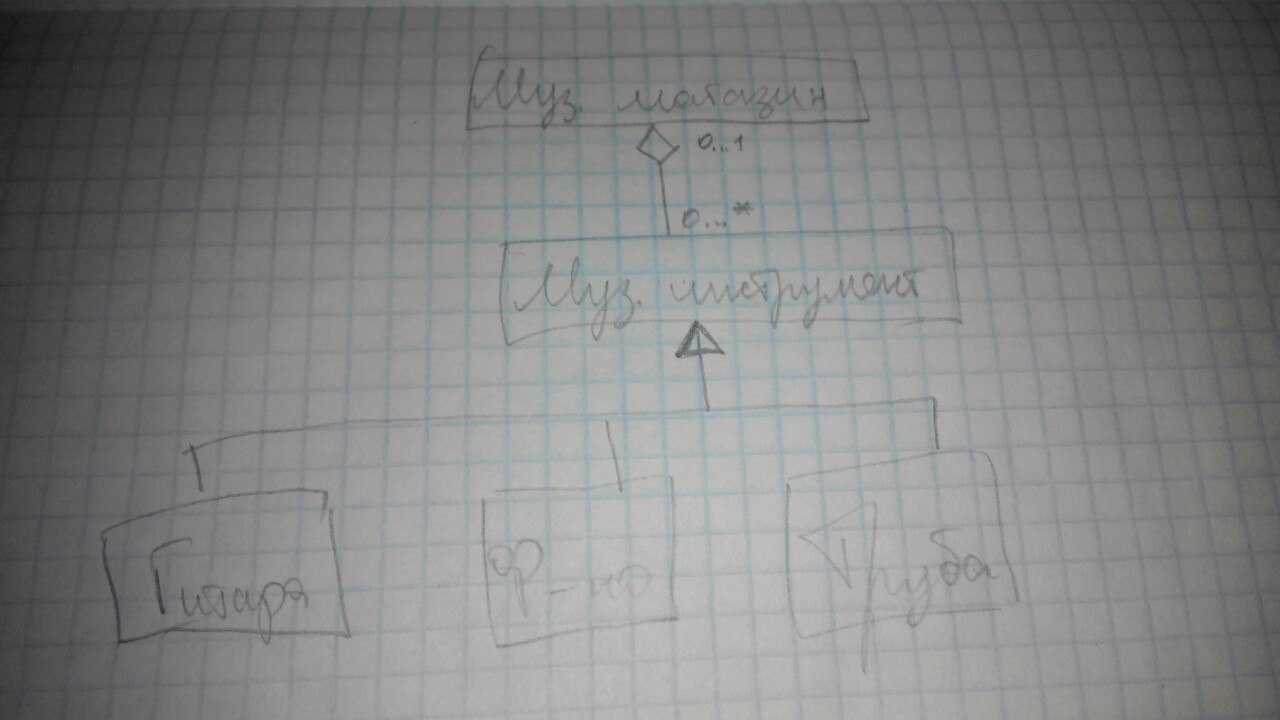 Муз. магазин
0...1
0...*
Муз. инструмент
Гитара
Ф-но
Труба